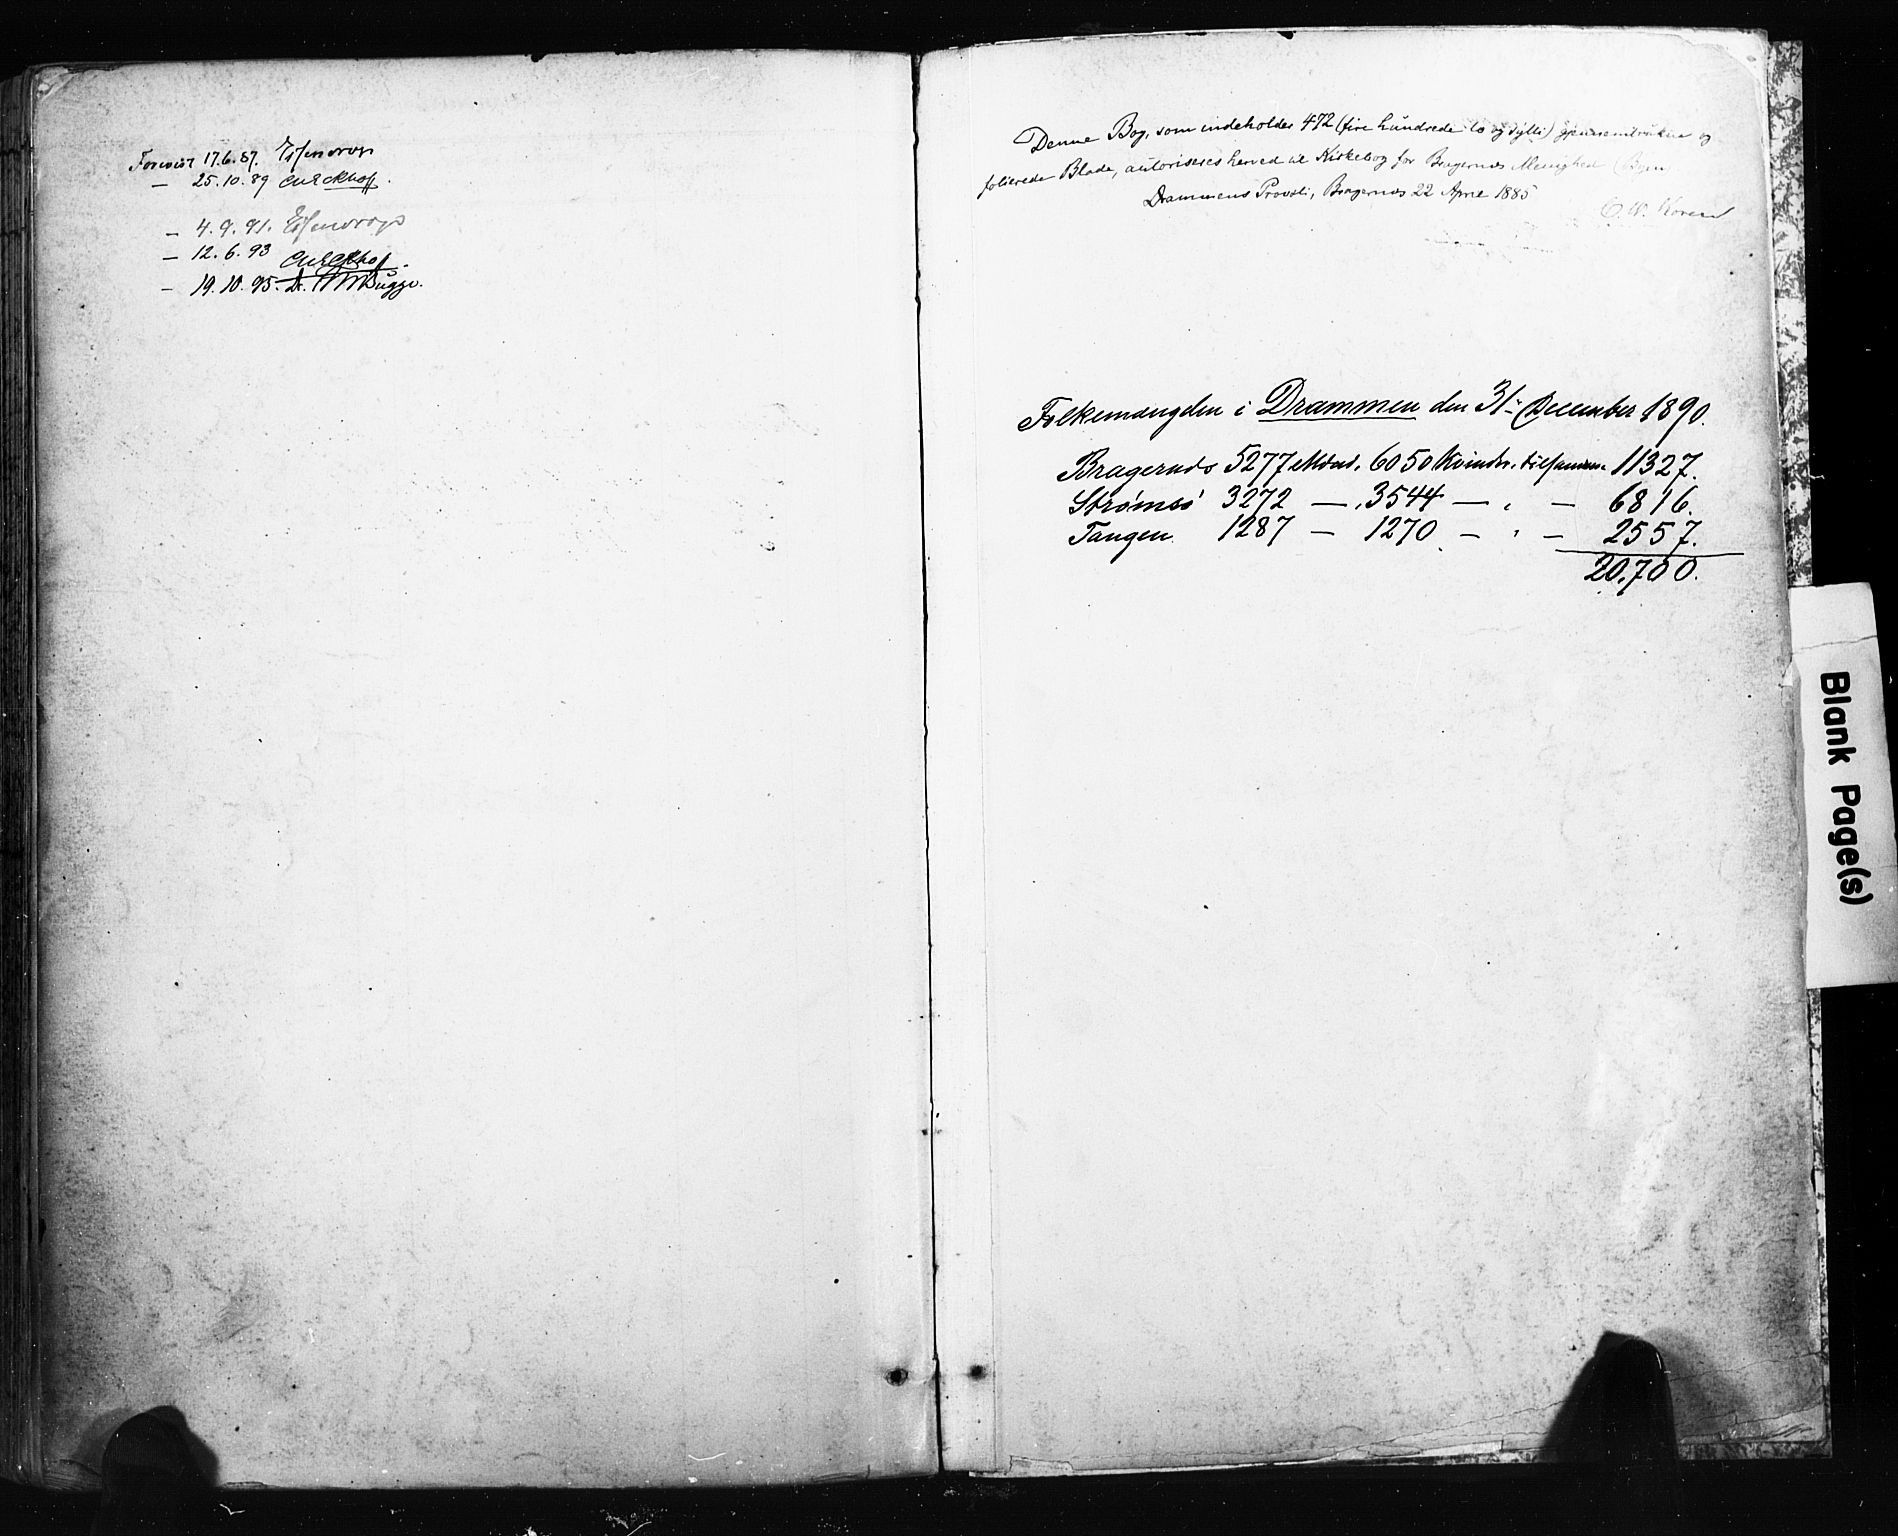 Forevist 17.6.87. Essendrop
— 25.10.89 Eckhoff.
— 4.9.91. Essendrop
— 12.6.93 Eckhoff.
— 19.10.95. Dr. Bugge.
Denne Bog, som indeholder 472 (fire hundrede to og sytti) gjennemtrukne og
folierede Blade, autoriseres herved til Kirkebog for Bragernæs Menighed (Byen
Drammens Provsti, Bragernæs 22 April 1885
C. W. Koren
Folkemængden i Drammen den 31te December 1890.
Bragernæs 5277 Mænd. 6050 Kvinder. tilsammen 11327.
Strømsø 3272 — . 3544 — . — 6816.
Tangen 1287 — 1270 — " — 2557.
20.700.
Blank Page(s)